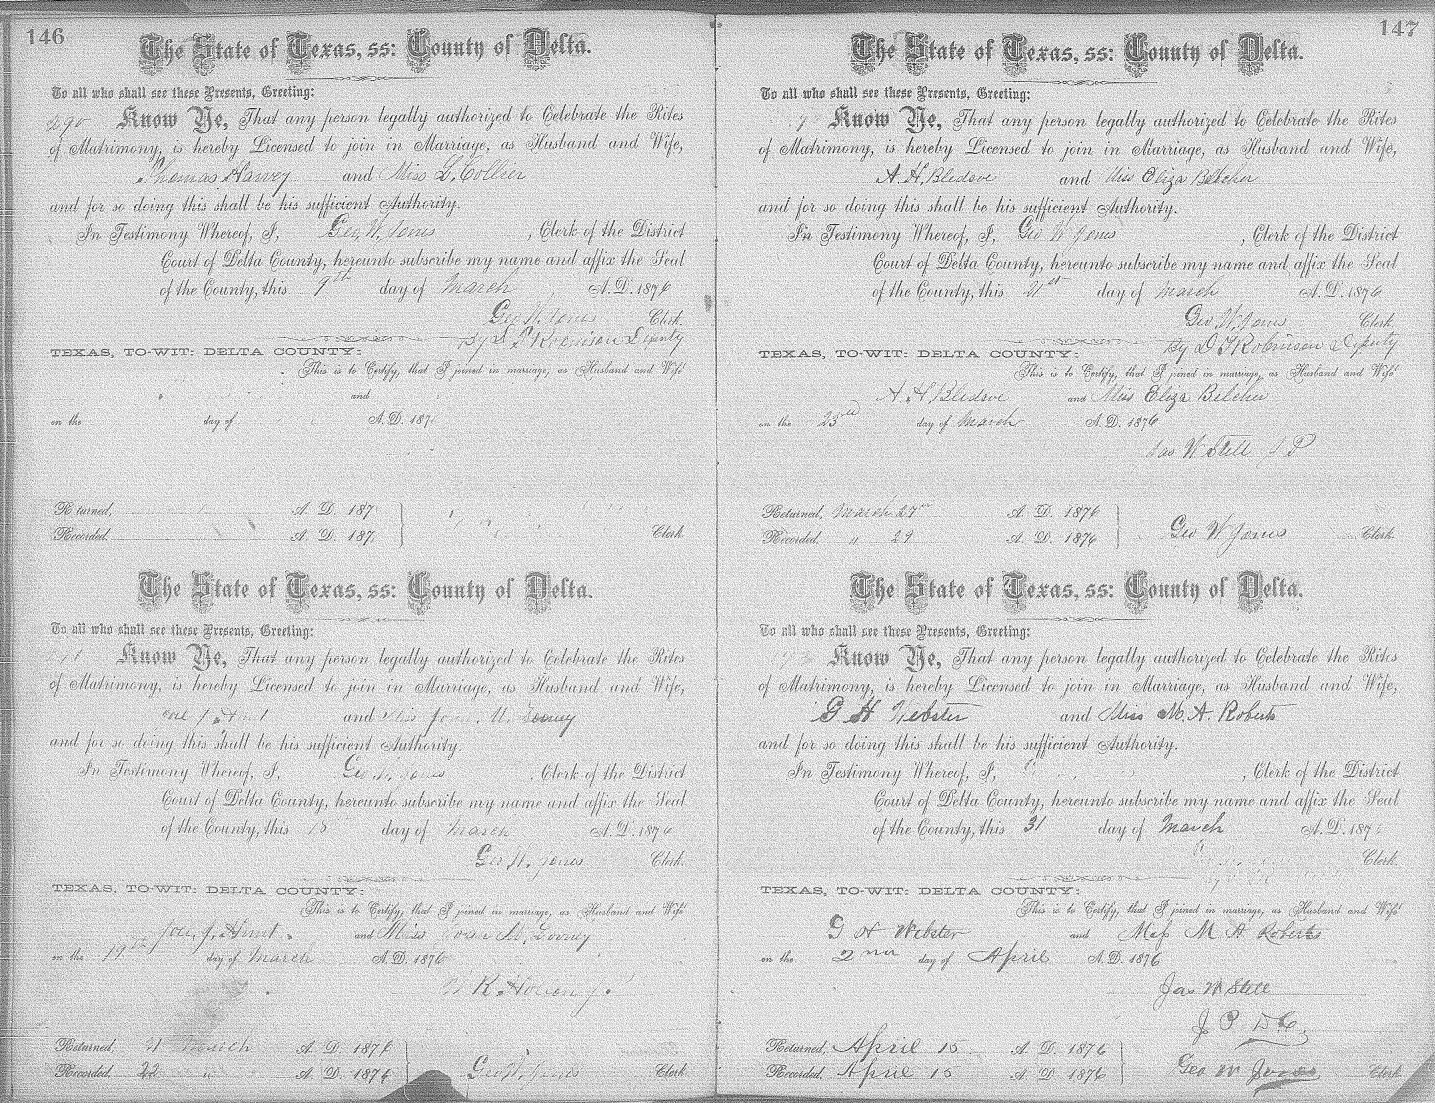 146
The State of Texas, ss: County of Delta.
To all who shall see these Presents, Greeting:
Know Ye, That any person legally authorized to Celebrate the Rites
of Matrimony, is hereby Licensed to join in Marriage, as Husband and Wife,
Thomas Harvey and Miss L. Collier
and for so doing this shall be his sufficient Authority.
In Testimony Whereof, I, Geo. W. Jones, Clerk of the District
Court of Delta County, hereunto subscribe my name and affix the Seal
of the County, this 9th day of March A.D. 1876
Geo W. Jones Clerk.
By Robinson Deputy
TEXAS, TO-WIT: DELTA COUNTY:
This is to Certify, that I joined in marriage, as Husband and Wife
and
on the day of A.D. 187
Returned, A. D. 187
Recorded, A. D. 187 Clerk.
The State of Texas, ss: County of Delta.
To all who shall see these Presents, Greeting:
Know Ye, That any person legally authorized to Celebrate the Rites
of Matrimony, is hereby Licensed to join in Marriage, as Husband and Wife,
and Miss M.
and for so doing this shall be his sufficient Authority.
In Testimony Whereof, I, Geo W. Jones, Clerk of the District
Court of Delta County, hereunto subscribe my name and affix the Seal
of the County, this 18 day of March A.D. 1876
Geo W. Jones Clerk.
TEXAS, TO-WIT: DELTA COUNTY:
This is to Certify, that I joined in marriage, as Husband and Wife
J. Hunt. and Miss M.
on the 19th day of March A.D. 1876
Returned, 21 March A. D. 1876
Recorded, 22 " A. D. 1876 Geo W. Jones Clerk
147
The State of Texas, ss: County of Delta.
To all who shall see these Presents, Greeting:
Know Ye, That any person legally authorized to Celebrate the Rites
of Matrimony, is hereby Licensed to join in Marriage, as Husband and Wife,
A. H. Bledsoe and Miss Eliza Belcher
and for so doing this shall be his sufficient Authority.
In Testimony Whereof, I, Geo W Jones, Clerk of the District
Court of Delta County, hereunto subscribe my name and affix the Seal
of the County, this 21st day of March A.D. 1876
Geo W. Jones Clerk
By Robinson Deputy
TEXAS, TO-WIT: DELTA COUNTY:
This is to Certify, that I joined in marriage, as Husband and Wife
A. H Bledsoe and Miss Eliza Belcher
on the 23rd day of March A.D. 1876
Jas W Stell J P
Returned, March 27th A. D. 1876
Recorded, " 29 A. D. 1876 Geo W Jones Clerk.
The State of Texas, ss: County of Delta.
To all who shall see these Presents, Greeting:
Know Ye, That any person legally authorized to Celebrate the Rites
of Matrimony, is hereby Licensed to join in Marriage, as Husband and Wife,
G H Webster and Miss M. A. Roberts
and for so doing this shall be his sufficient Authority.
In Testimony Whereof, I, , Clerk of the District
Court of Delta County, hereunto subscribe my name and affix the Seal
of the County, this 31 day of March A.D. 187
Clerk.
TEXAS, TO-WIT: DELTA COUNTY:
This is to Certify, that I joined in marriage, as Husband and Wife
G H Webster and Miss M A Roberts
on the 2nd day of April A.D. 1876
Jas W Stell
J P D C.
Returned, April 15 A. D. 1876
Recorded, April 15 A. D. 1876 Geo W Jones Clerk